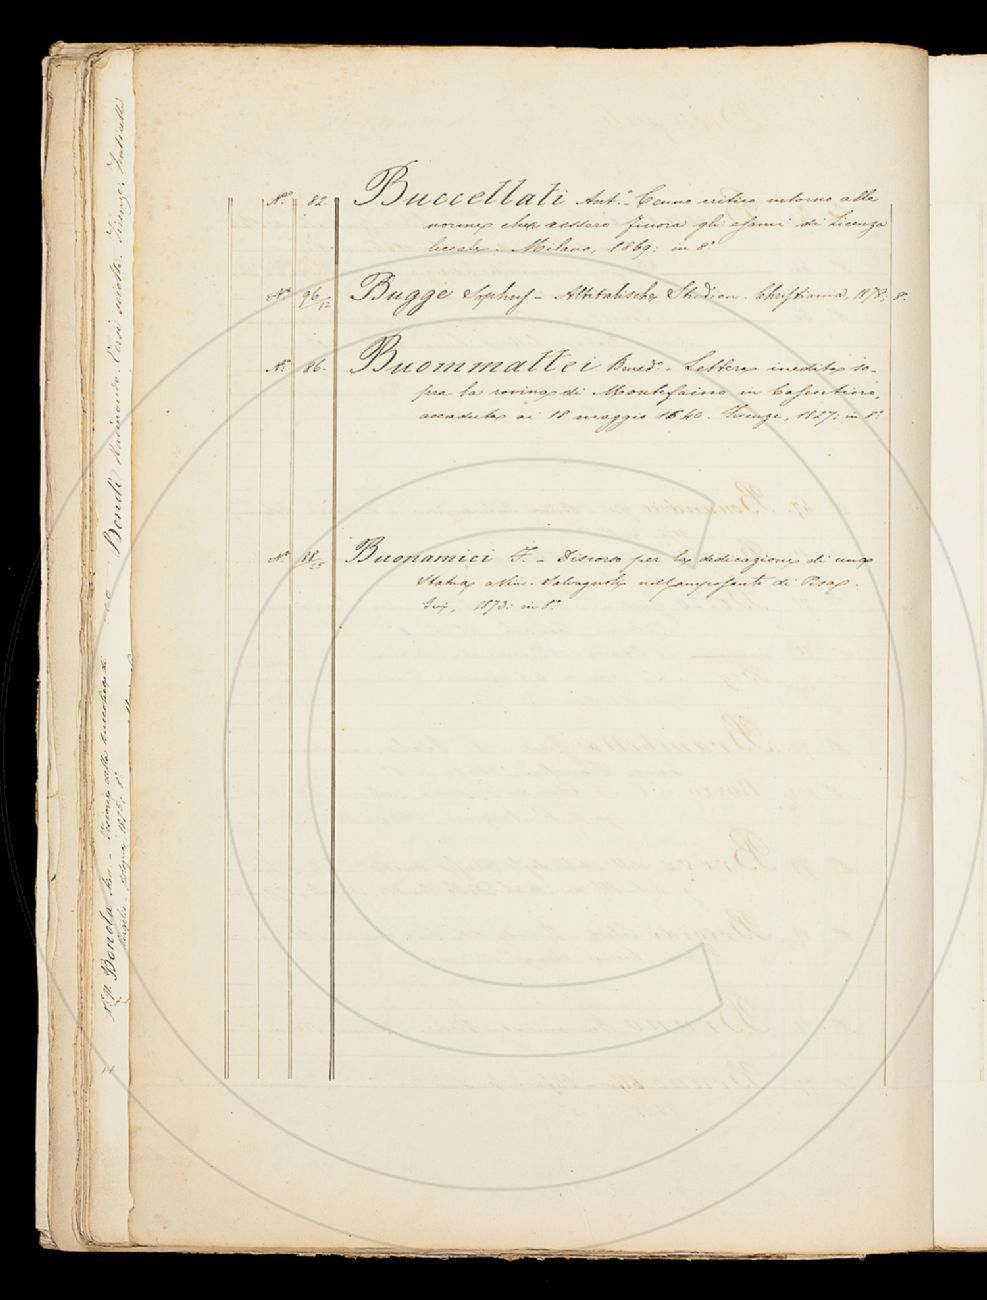 N.º 82. Buccellati Ant.º - Cenno critico intorno alle
norme che ressero finora gli esami di Licenza
liceale. Milano, 1869: in 8º
N.º 96/12 Bugge Sophus - Altitalische Studien. Christiania, 1878; 8º.
N.º 86. Buommattei Bened.º - Lettera inedita so-
pra la rovina di Montefaino in Casentino,
accaduta ai 18 maggio 1640. Firenze, 1827: in 8º.
N.º /25 Buonamici F. - Discorso per la dedicazione di una
statua a Vinc. Salvagnoli nel Camposanto di Pisa.
Ivi, 1873: in 8º.
Bondi Raimondo. Versi sciolti. Firenze,
N.º 91. Bonola - Versione dalla buccolica di
Virgilio - Bologna, 1878; 8º